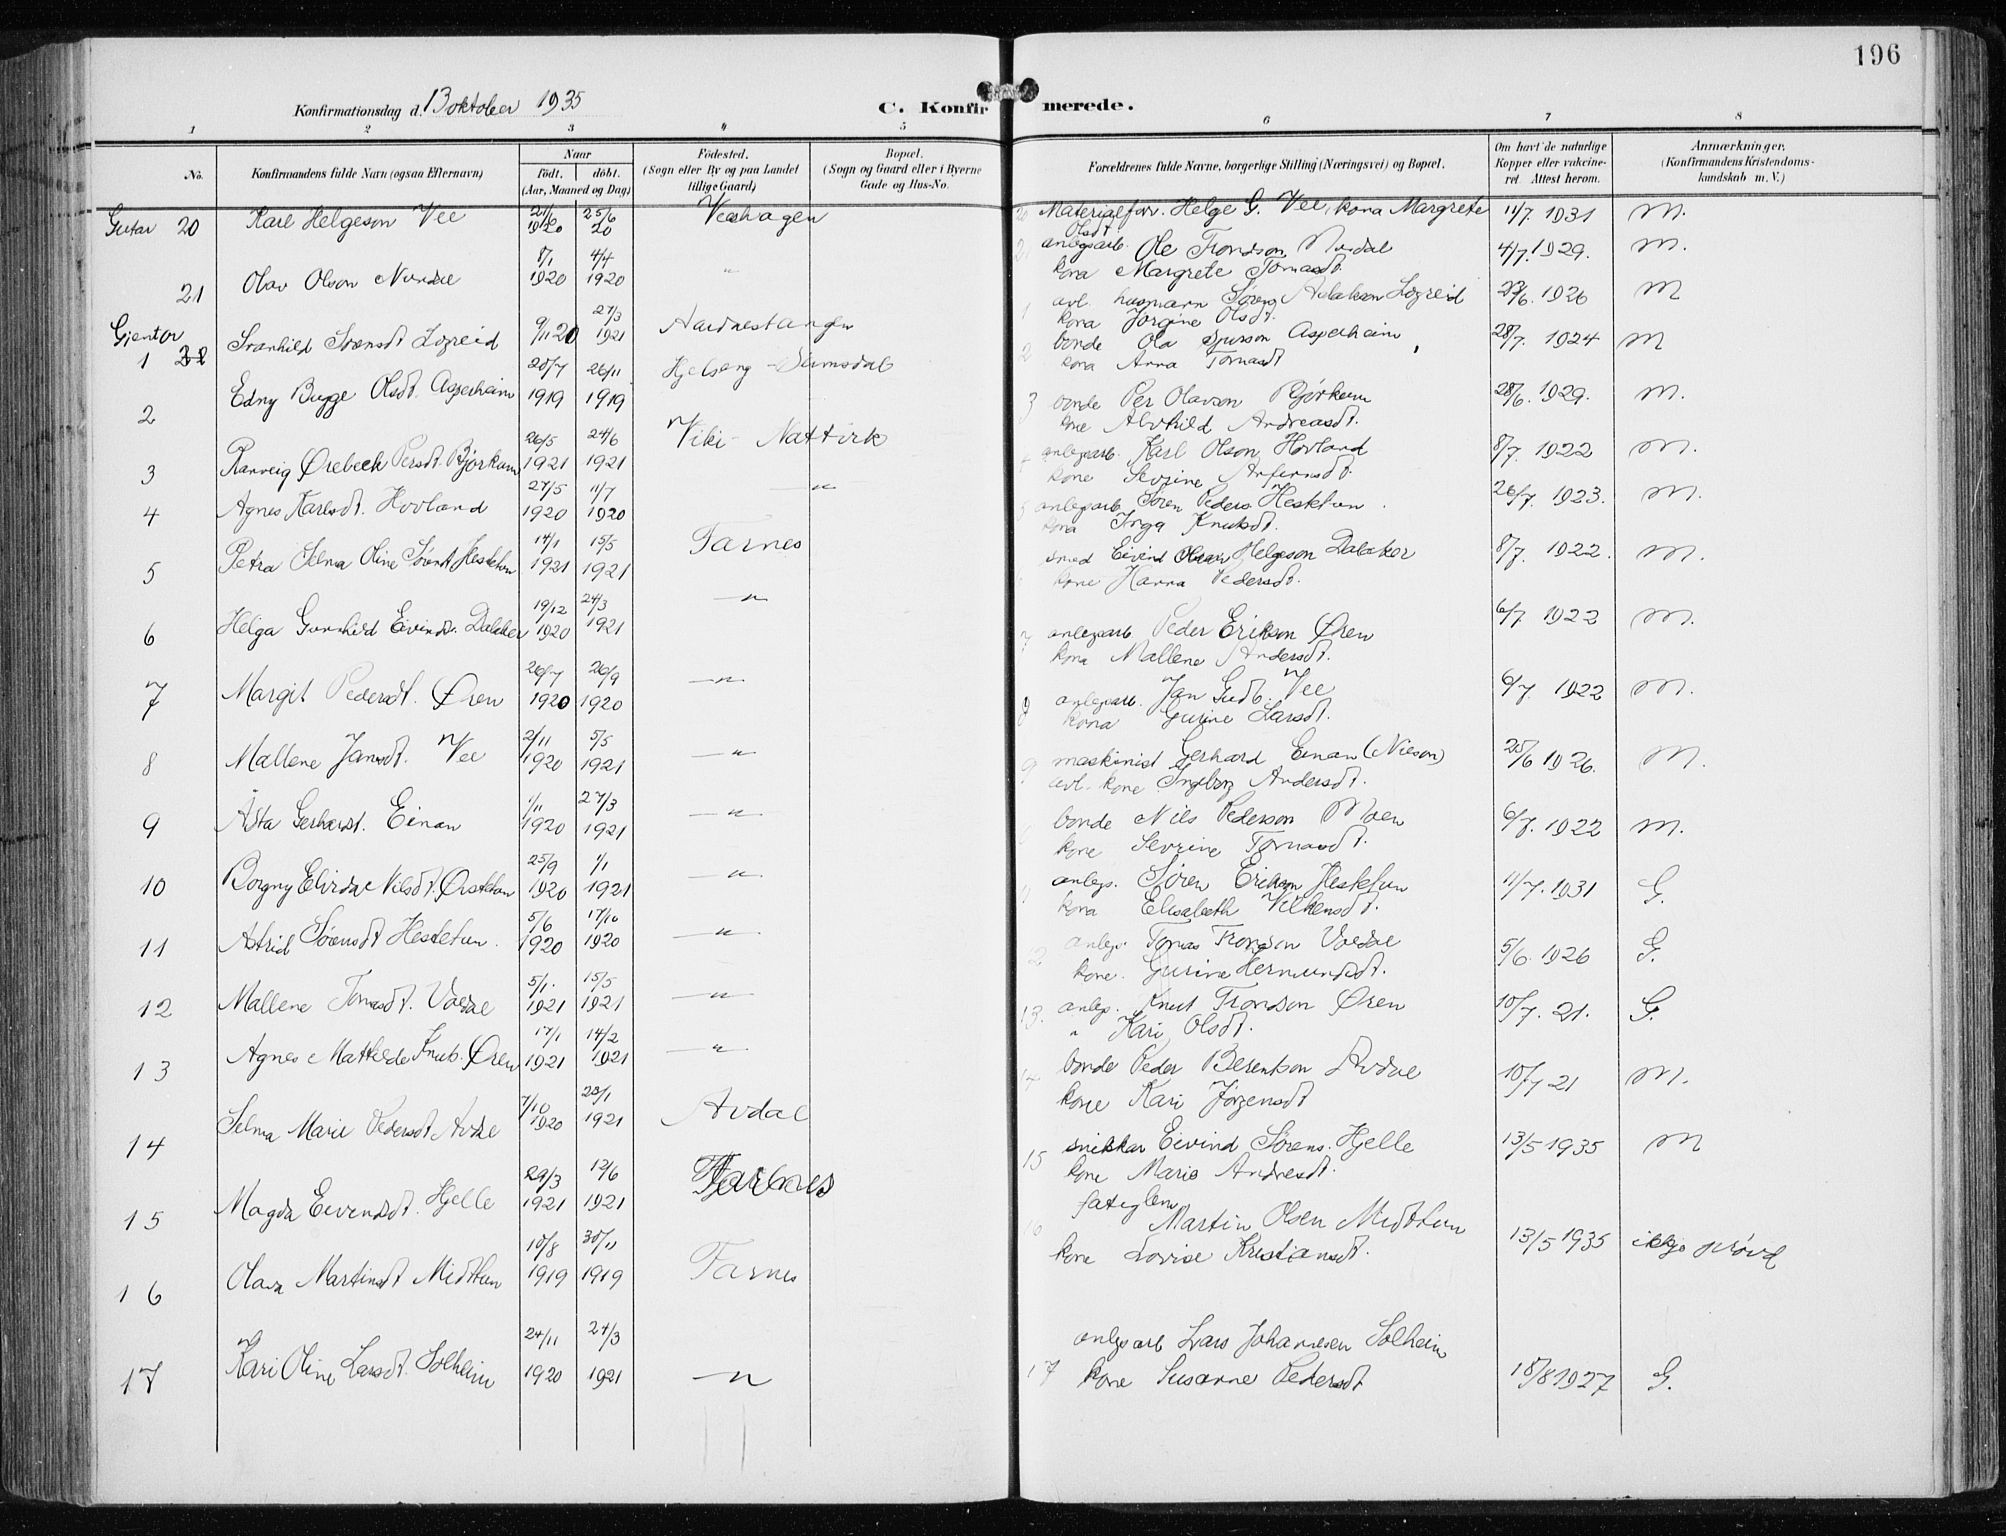 196
Konfirmationsdag d. 13 oktober 1935
C. Konfirmerede.
1 2 3 4 5 6 7 8
No.
Konfirmandens fulde Navn (ogsaa Efternavn)
Naar
födt. döbt.
(Aar, Maaned og Dag)
Födested.
(Sogn eller By og paa Landet
tillige Gaard)
Bopæl.
(Sogn og Gaard eller i Byerne
Gade og Hus-No.
Forældrenes fulde Navne, borgerlige Stilling (Næringsvei) og Bopæl.
Om havt de naturlige
Kopper eller vakcineret.
Attest herom.
Anmærkninger.
(Konfirmandens Kristendomskundskab
m. V.)
Gutar 20 Karl Helgeson Vee 21/6 1920 25/6 20 Veehagen
20 Materialforv. Helge G. Vee, kona Margrete Olsdt. 11/7 1931 M.
21 Olav Olson Nundal 8/1 1920 4/4 1920 "
anlegsarb. Ole Trondson Nundal
kona Margrete Tomasdt. 4/7. 1929. M.
Gjentor
1 Svanhild Sørensdt Logreid 9/11 20 27/3 1921 Aardnestangen
1 avl. husmann Søren Logreid
kona Jorgine Olsdt. 1926 M
2 Edny Bugge Olsdt. Asperheim 20/7 1919 26/11 1919
2 bonde Ola Asperheim
kona Anna Tomasdt 28/7. 1924 M
3 Ranveig Ørebech Persdt. Bjørkum 26/5 1921 24/6 1921 Viki
3 bonde Per Olavson Bjørkum
kone Alvhild Andreasdt. 28/6. 1929. M.
4 Agnes Karlsdt. Hovland 27/5 1920 11/7 1920 "
anlegsarb. Karl Olson Hovland
kone Sevrine 8/7. 1922 M.
5 Petra Selma Oline Sørensdt Hestetun 14/1 1921 15/5 1921 Farnes
5 anlegsarb Søren Peders. Hestetun
kona Inga Knutsdt. 26/7. 1923. M.
6 Helga Gunhild Eivindsdt. Dalaker 19/12 1920 24/3 1921 "
smed Eivind Helgeson Dalaker
kone Hanna Pedersdt. 8/7. 1922. M.
7 Margit Pedersdt. Øren 26/7 1920 26/9 1920 "
7 anlegsarb Peder Erikson Øren
kona Mallene Andersdt. 6/7 1922 M.
8 Mallene Jansdt. Vee 2/11 1920 5/5 1921 "
8 anlegsarb. Jan Gudb. Vee
kona Gurine Larsdt. 6/7 1922 M.
9 Åsta Gerhardsdt. Einan 1/11 1920 27/3 1921 "
9 maskinist Gerhard Einan (Nilson)
avl. kone Ingeborg Andersdt. 25/6 1926. M.
10 Borgny Elvira Nilsdt. 25/9 1920 1/1 1921 "
bonde Nils Pederson Moen
kone Sevrine Tomasdt. 6/7. 1922 M.
11 Astrid Sørensdt Hestetun. 5/6 1920 17/10 1920 "
anlegs. Søren Erikson Hestetun
kona Elisabeth Vilhemsdt. 11/7. 1931 G.
12 Mallene Tomasdt. Voldal 5/1. 1921 15/5 1921 "
12 anlegs. Tomas Trondson Voldal
kone. Gurine Hermundsdt. 5/6. 1926 G.
13 Agnes Mathilde Knutsdt. Øren 17/1 1921 14/2 1921 "
13. anlegs. Knut Trondson Øren
" Kari Olsdt. 10/7. 21. G.
14 Selma Marie Pedersdt Avdal 7/10 1920 23/1 1921 Avdal
14 bonde Peder Berentson Avdal
kone Kari Jörgensdt 10/7 21 M.
15 Magda Eivindsdt. Hjelle 29/3 1921 12/6 1921 Farnes
15 snikkar Eivind Sørens. Hjelle
kone Marie Andresdt. 13/5 1935 M
16 Olava Martinsdt Midttun 10/8 1919 30/11 1919 Farnes
16 fateglem Martin Olsen Midttun
kone Lovise Kristiansdt. 13/5 1935 ikkje prøvd
17 Kari Oline Larsdt. Solheim 24/11 1920 24/3 1921 "
17 anlegsarb Lars Johannesen Solheim
kone Susanne Pedersdt 18/8 1927 G.